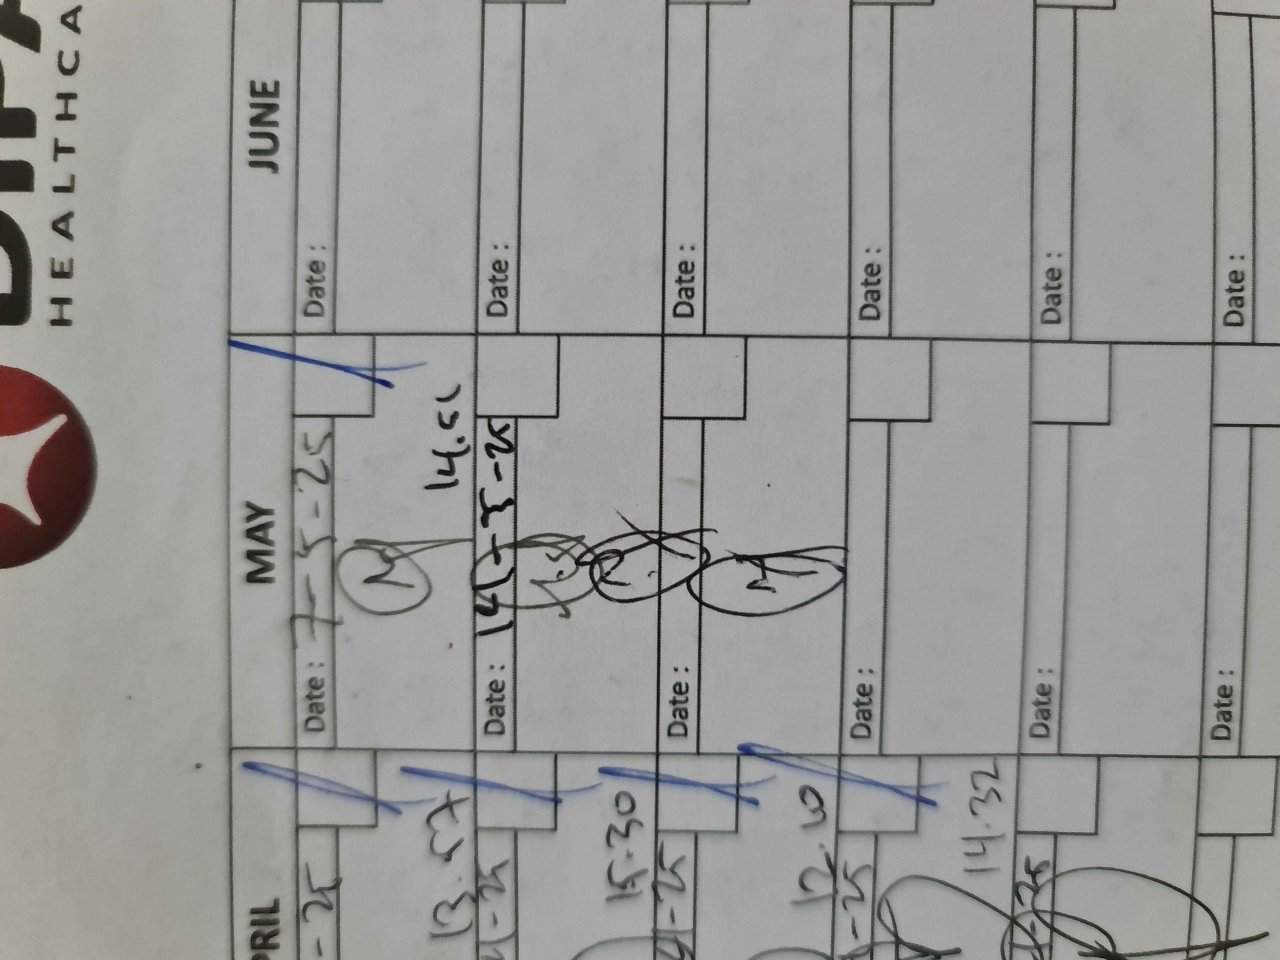 HEALTHCA
PRIL
MAY
JUNE
-25
Date : 7-5-25
Date :
13.57
14.51
-25
Date : 14-5-25
Date :
15.30
-25
Date :
Date :
-25
Date :
Date :
14.32
-25
Date :
Date :
Date :
Date :